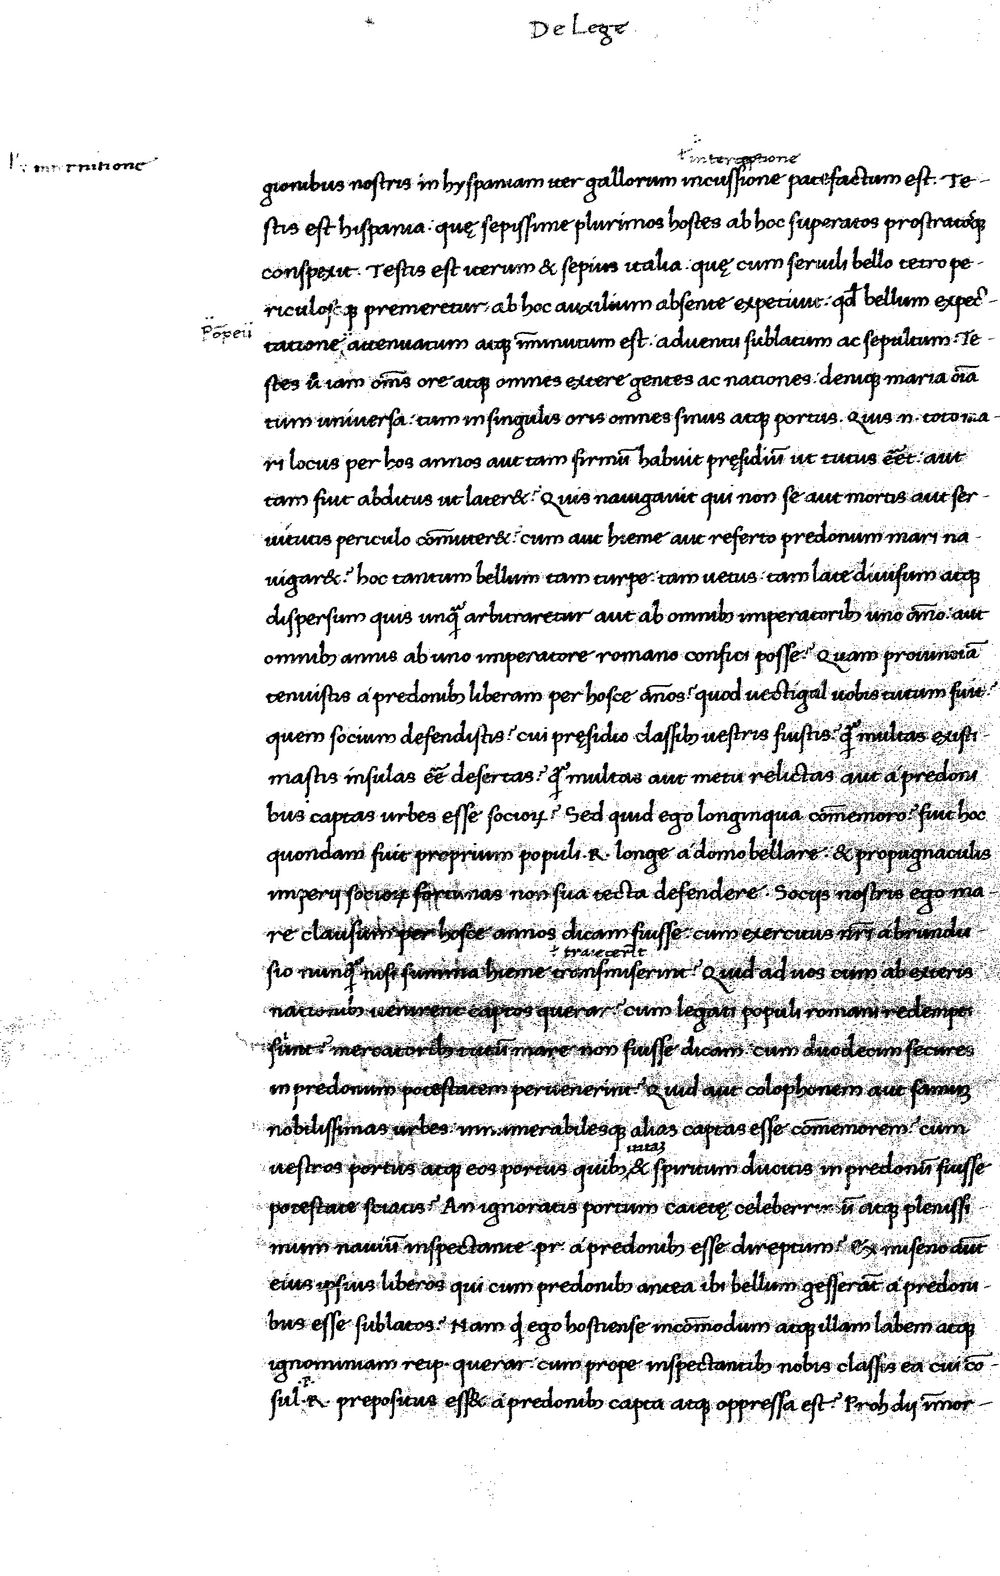 De Lege
internitione
interceptione
gionibus nostris in hyspaniam iter gallorum incussione patefactum est. Te-
stis est hispania. quę sepissime plurimos hostes ab hoc superatos prostratosq;
conspexit. Testis est iterum & sepius italia. quę cum seruili bello tetro pe-
riculosoq; premeretur. ab hoc auxilium absente expetiuit. qđ bellum expec-
Põpeii
tatione attenuatum atq; im̄inutum est. aduentu sublatum ac sepultum. Te-
stes ū iam om̄s ore atq; omnes extere gentes ac nationes. deniq; maria oīa
tum uniuersa. tum in singulis oris omnes sinus atq; portus. Quis n. toto ma-
ri locus per hos annos aut tam firmū habuit pręsidiū ut tutus eēt. aut
tam fuit abditus ut later&? Quis nauigauit qui non se aut mortis aut ser-
uitutis periculo com̄itter&? cum aut hieme aut referto predonum mari na-
uigar&? hoc tantum bellum tam turpe. tam uetus. tam late diuisum atq;
dispersum quis unq̃ arbitraretur aut ab omnib; imperatorib; uno āno. aut
omnib; annis ab uno imperatore romano confici posse? Quam prouinciā
tenuistis a predonib; liberam per hosce ānos? quod uectigal uobis tutum fuit?
quem socium defendistis? cui pręsidio classib; uestris fuistis? q̃ multas existi-
mastis insulas eē desertas? q̃ multas aut metu relictas aut a predoni
bus captas urbes esse socioꝝ? Sed quid ego longinqua com̄emoro? fuit hoc
quondam fuit proprium populi .R. longe a domo bellare. & propugnaculis
imperij socioꝝ fortunas non sua tecta defendere. Socijs nostris ego ma-
re clausum per hosce annos dicam fuisse. cum exercitus nr̄i a brundu
traiecerīt
sio nunq̃ nisi summa hieme transmiserint? Quid ad uos cum ab exteris
nationib; uenirent captos querar? cum legati populi romani redempti
sunt? mercatorib; tutū mare non fuisse dicam. cum duodecim secures
in predonum potestatem peruenerint? Quid aut colophonem aut samum
nobilissimas urbes. innumerabilesq; alias captas esse com̄emorem? cum
uitaꝫ
uestros portus atq; eos portus quib; & spiritum ducitis in predonū fuisse
potestate sciatis? An ignoratis portum caietę celeberrimū atq; plenissi
mum nauiū inspectante pr. a predonib; esse direptum? Ex miseno aūt
eius ipsius liberos qui cum predonib; antea ibi bellum gesserāt a predoni-
bus esse sublatos? Nam qđ ego hostiense incom̄odum atq; illam labem atq;
ignominiam reip. querar. cum prope inspectantib; nobis classis ea cui cō-
P.
sul .R. prepositus ess& a predonib; capta atq; oppressa est? Proh dij im̄or-